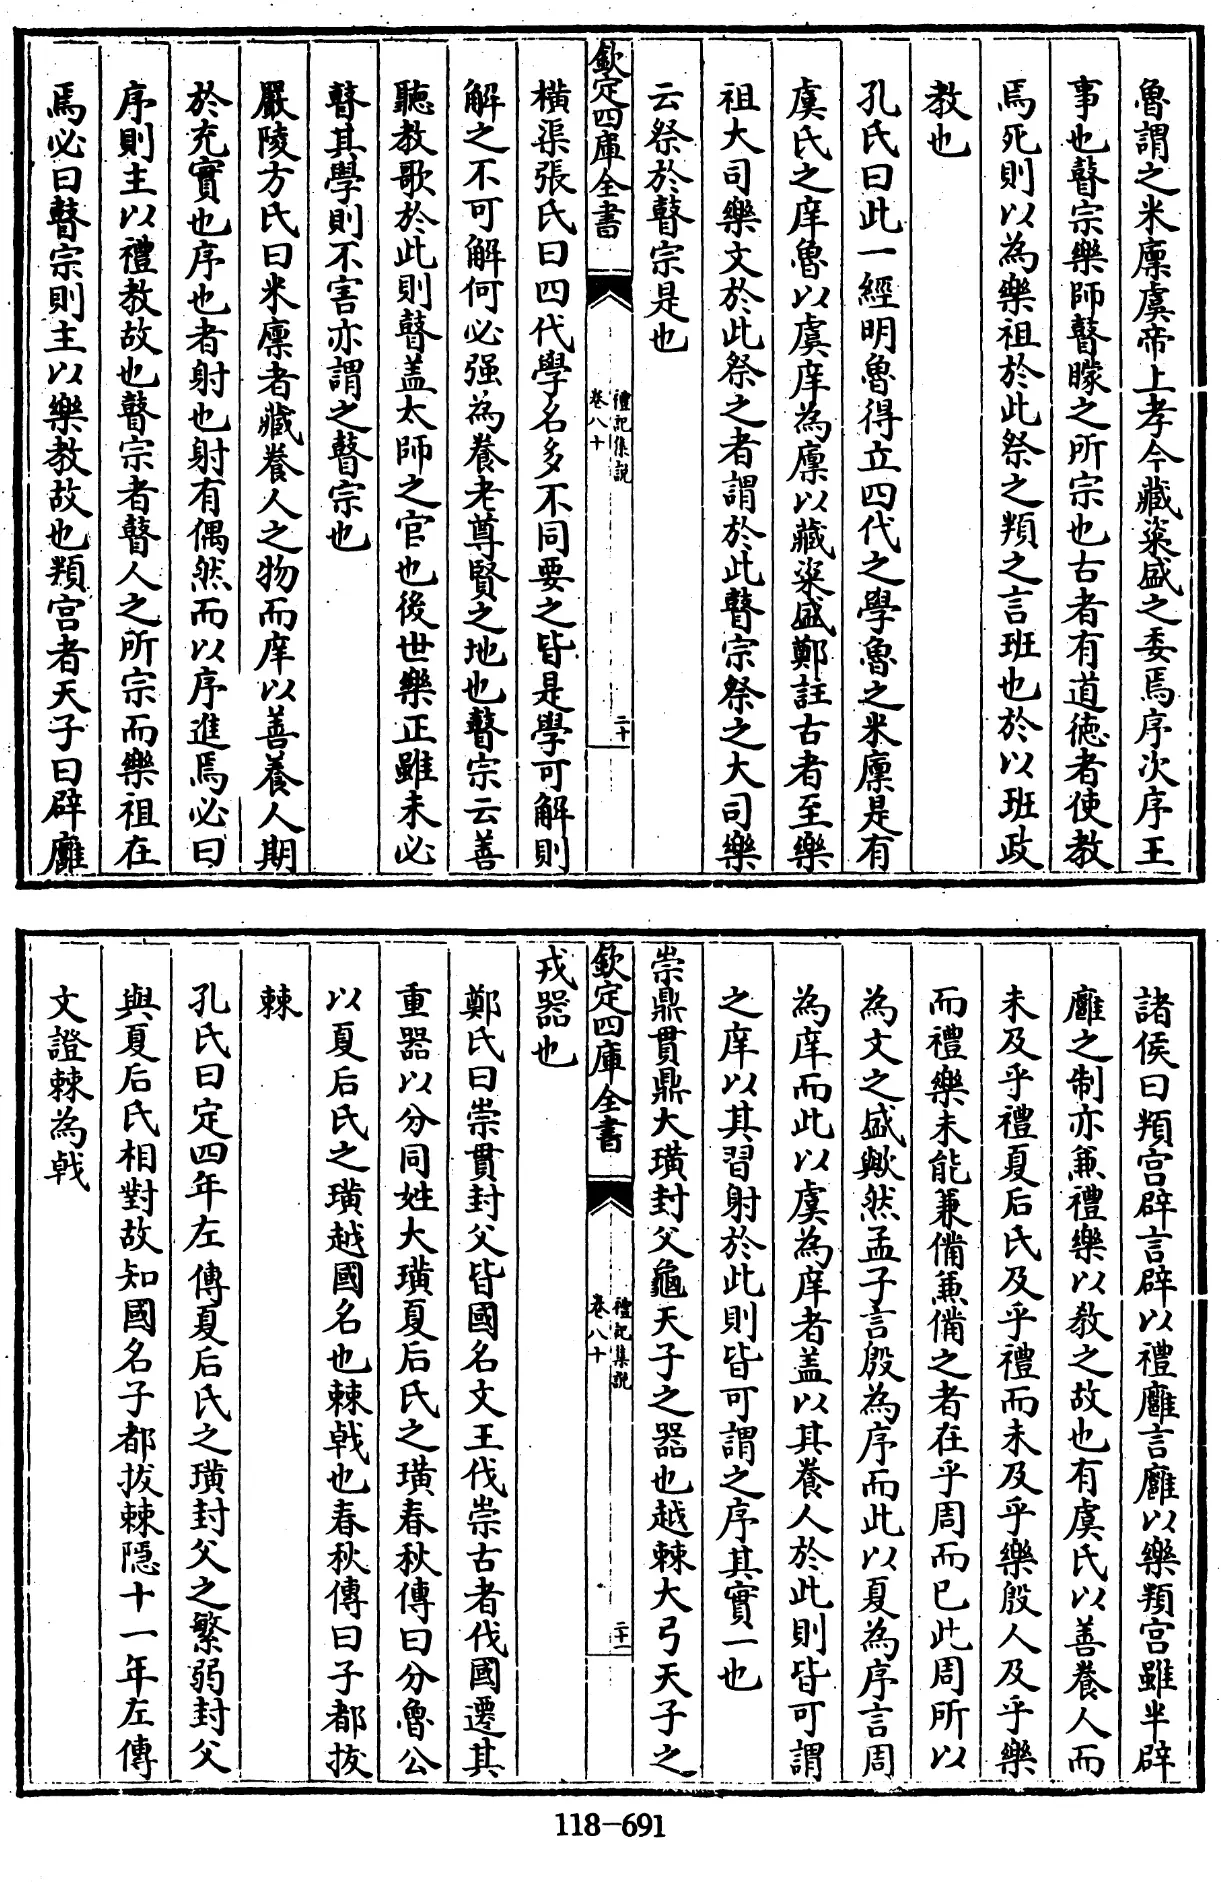 魯謂之米廩虞帝上孝今藏粢盛之委焉序次序王
事也瞽宗樂師瞽矇之所宗也古者有道德者使教
焉死則以為樂祖於此祭之頖之言班也於以班政
教也
孔氏曰此一經明魯得立四代之學魯之米廩是有
虞氏之庠魯以虞庠為廩以藏粢盛鄭註古者至樂
祖大司樂文於此祭之者謂於此瞽宗祭之大司樂
云祭於瞽宗是也
欽定四庫全書
禮記集說
卷八十
二十
橫渠張氏曰四代學名多不同要之皆是學可解則
解之不可解何必强為養老尊賢之地也瞽宗云善
聽教歌於此則瞽盖太師之官也後世樂正雖未必
瞽其學則不害亦謂之瞽宗也
嚴陵方氏曰米廩者藏養人之物而庠以善養人期
於充實也序也者射也射有偶然而以序進焉必曰
序則主以禮教故也瞽宗者瞽人之所宗而樂祖在
焉必曰瞽宗則主以樂教故也頖宮者天子曰辟廱
諸侯曰頖宮辟言辟以禮廱言廱以樂頖宮雖半辟
廱之制亦兼禮樂以教之故也有虞氏以善養人而
未及乎禮夏后氏及乎禮而未及乎樂殷人及乎樂
而禮樂未能兼備兼備之者在乎周而已此周所以
為文之盛歟然孟子言殷為序而此以夏為序言周
為庠而此以虞為庠者盖以其養人於此則皆可謂
之庠以其習射於此則皆可謂之序其實一也
崇鼎貫鼎大璜封父龜天子之器也越棘大弓天子之
欽定四庫全書
禮記集說
卷八十
二十一
戎器也
鄭氏曰崇貫封父皆國名文王伐崇古者伐國遷其
重器以分同姓大璜夏后氏之璜春秋傳曰分魯公
以夏后氏之璜越國名也棘戟也春秋傳曰子都拔
棘
孔氏曰定四年左傳夏后氏之璜封父之繁弱封父
與夏后氏相對故知國名子都拔棘隱十一年左傳
文證棘為戟
118-691